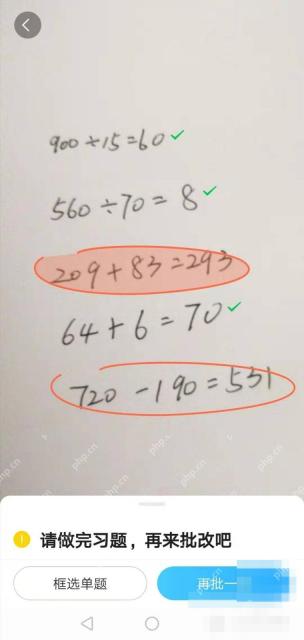 900÷15=60
560÷70=8
209+83=293
64+6=70
720-190=531
php.cn
php.cn
php.cn
php.cn
请做完习题，再来批改吧
框选单题
再批一